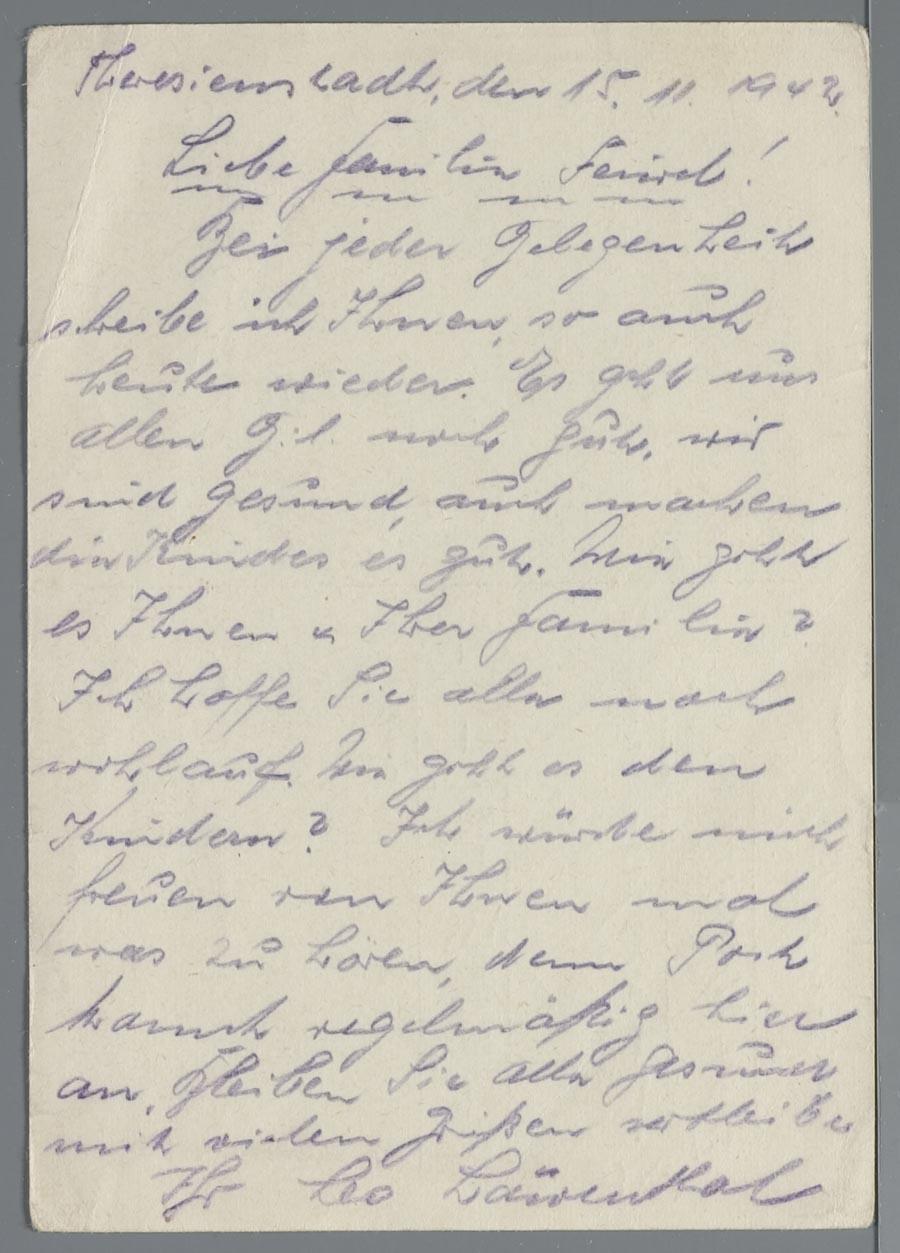 Theresienstadt, den 15. 11. 1942.
Liebe Familie
Bei jeder Gelegenheit
schreibe ich Ihnen, so auch
heute wieder. Es geht uns
allen G. l. noch gut, wir
sind gesund, auch machen
die Kinder es gut. Wie geht
es Ihnen u Ihrer Familie?
Ich hoffe Sie alle noch
wohlauf. Wie geht es den
Kindern? Ich würde mich
freuen von Ihnen mal
was zu hören, denn Post
kommt regelmäßig hier
an. Bleiben Sie alle gesund
mit vielen Grüßen verbleibe
Ihr Leo Löwenthal